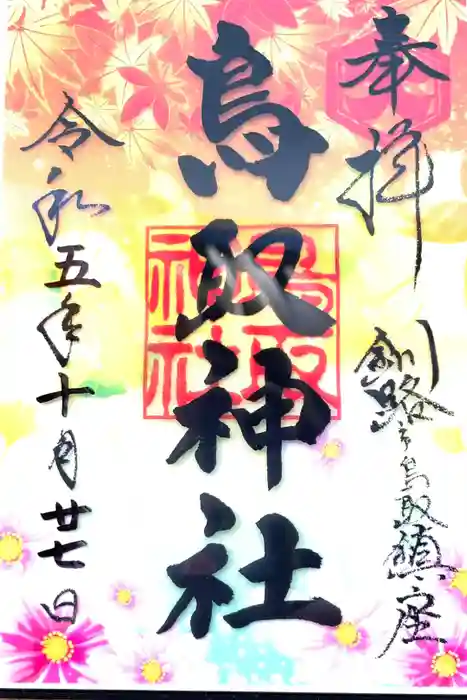 奉拝
釧路市鳥取鎮座
鳥取神社
鳥取
神社
令和五年十月廿七日